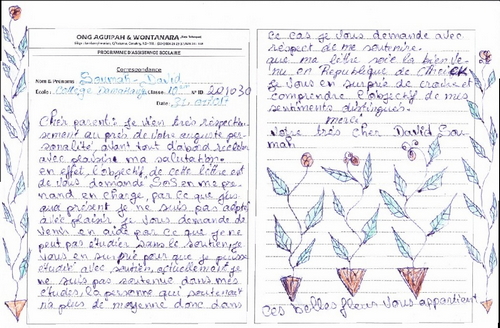 ONG AGUIPAH & WONTANARA
PROGRAMME D'ASSISTANCE SCOLAIRE
Correspondance
Nom & Prénoms Soumah David
Ecole: Collège Classe: 10ème N° ID: 201030
Date:
Cher parent: je vien très respectu-
sement au près de votre auguste per-
sonalité, avant tout d'abord
avec plaisir ma salutation.
en effet, l'objectif de cette lettre est
de vous demande SOS en me pe-
nand en charge, par ce que jus
qu'au présent je ne suis pas
avec plaisir je vous demande de
venir en aide par ce que je ne
peut pas étudier sans le soutien, je
vous en suprie pour que je puisse
étudier avec soutien, actuellement je
ne suis pas soutenue dans mes
études, la personne qui soutenait
n'a plus de moyenne donc dans
ce cas je vous demande avec
respect de me soutenire.
que ma lettre soit la bienve-
nu en Republique de
je vous en suprie de croire et
comprendre l'objectif de mes
sentiments distingués.
merci
Votre très cher David Sou-
mah
Ces belles fleur vous appartient